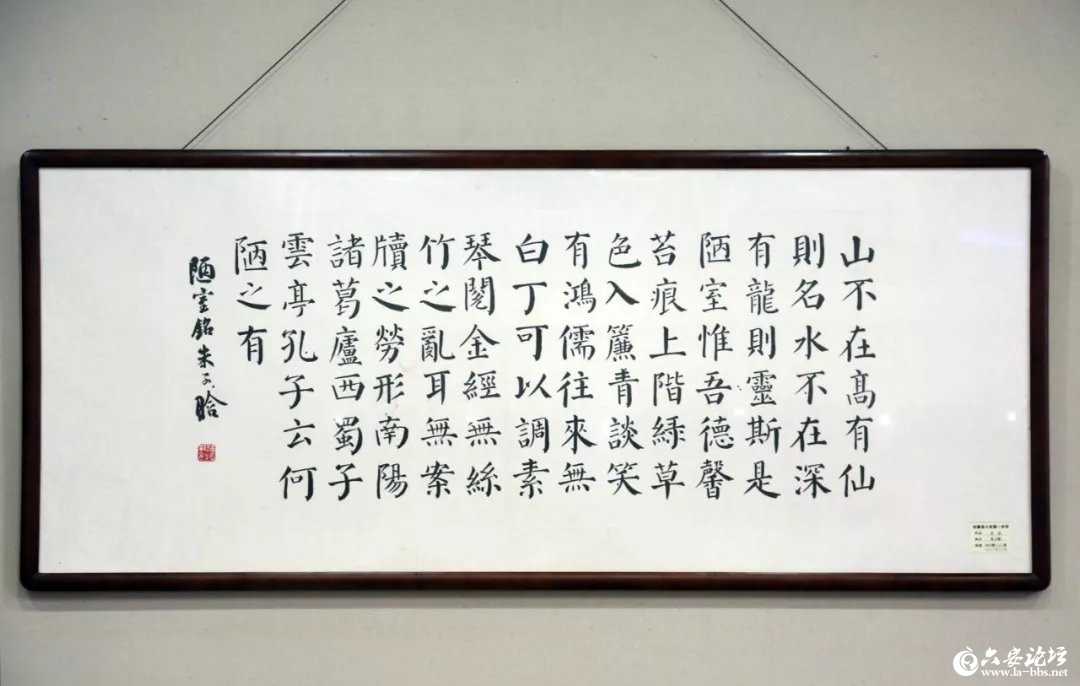 山不在高有仙
則名水不在深
有龍則靈斯是
陋室惟吾德馨
苔痕上階綠草
色入簾青談笑
有鴻儒往來無
白丁可以調素
琴閱金經無絲
竹之亂耳無案
牘之勞形南陽
諸葛廬西蜀子
雲亭孔子云何
陋之有
陋室銘朱
六安论坛
www.la-bbs.net